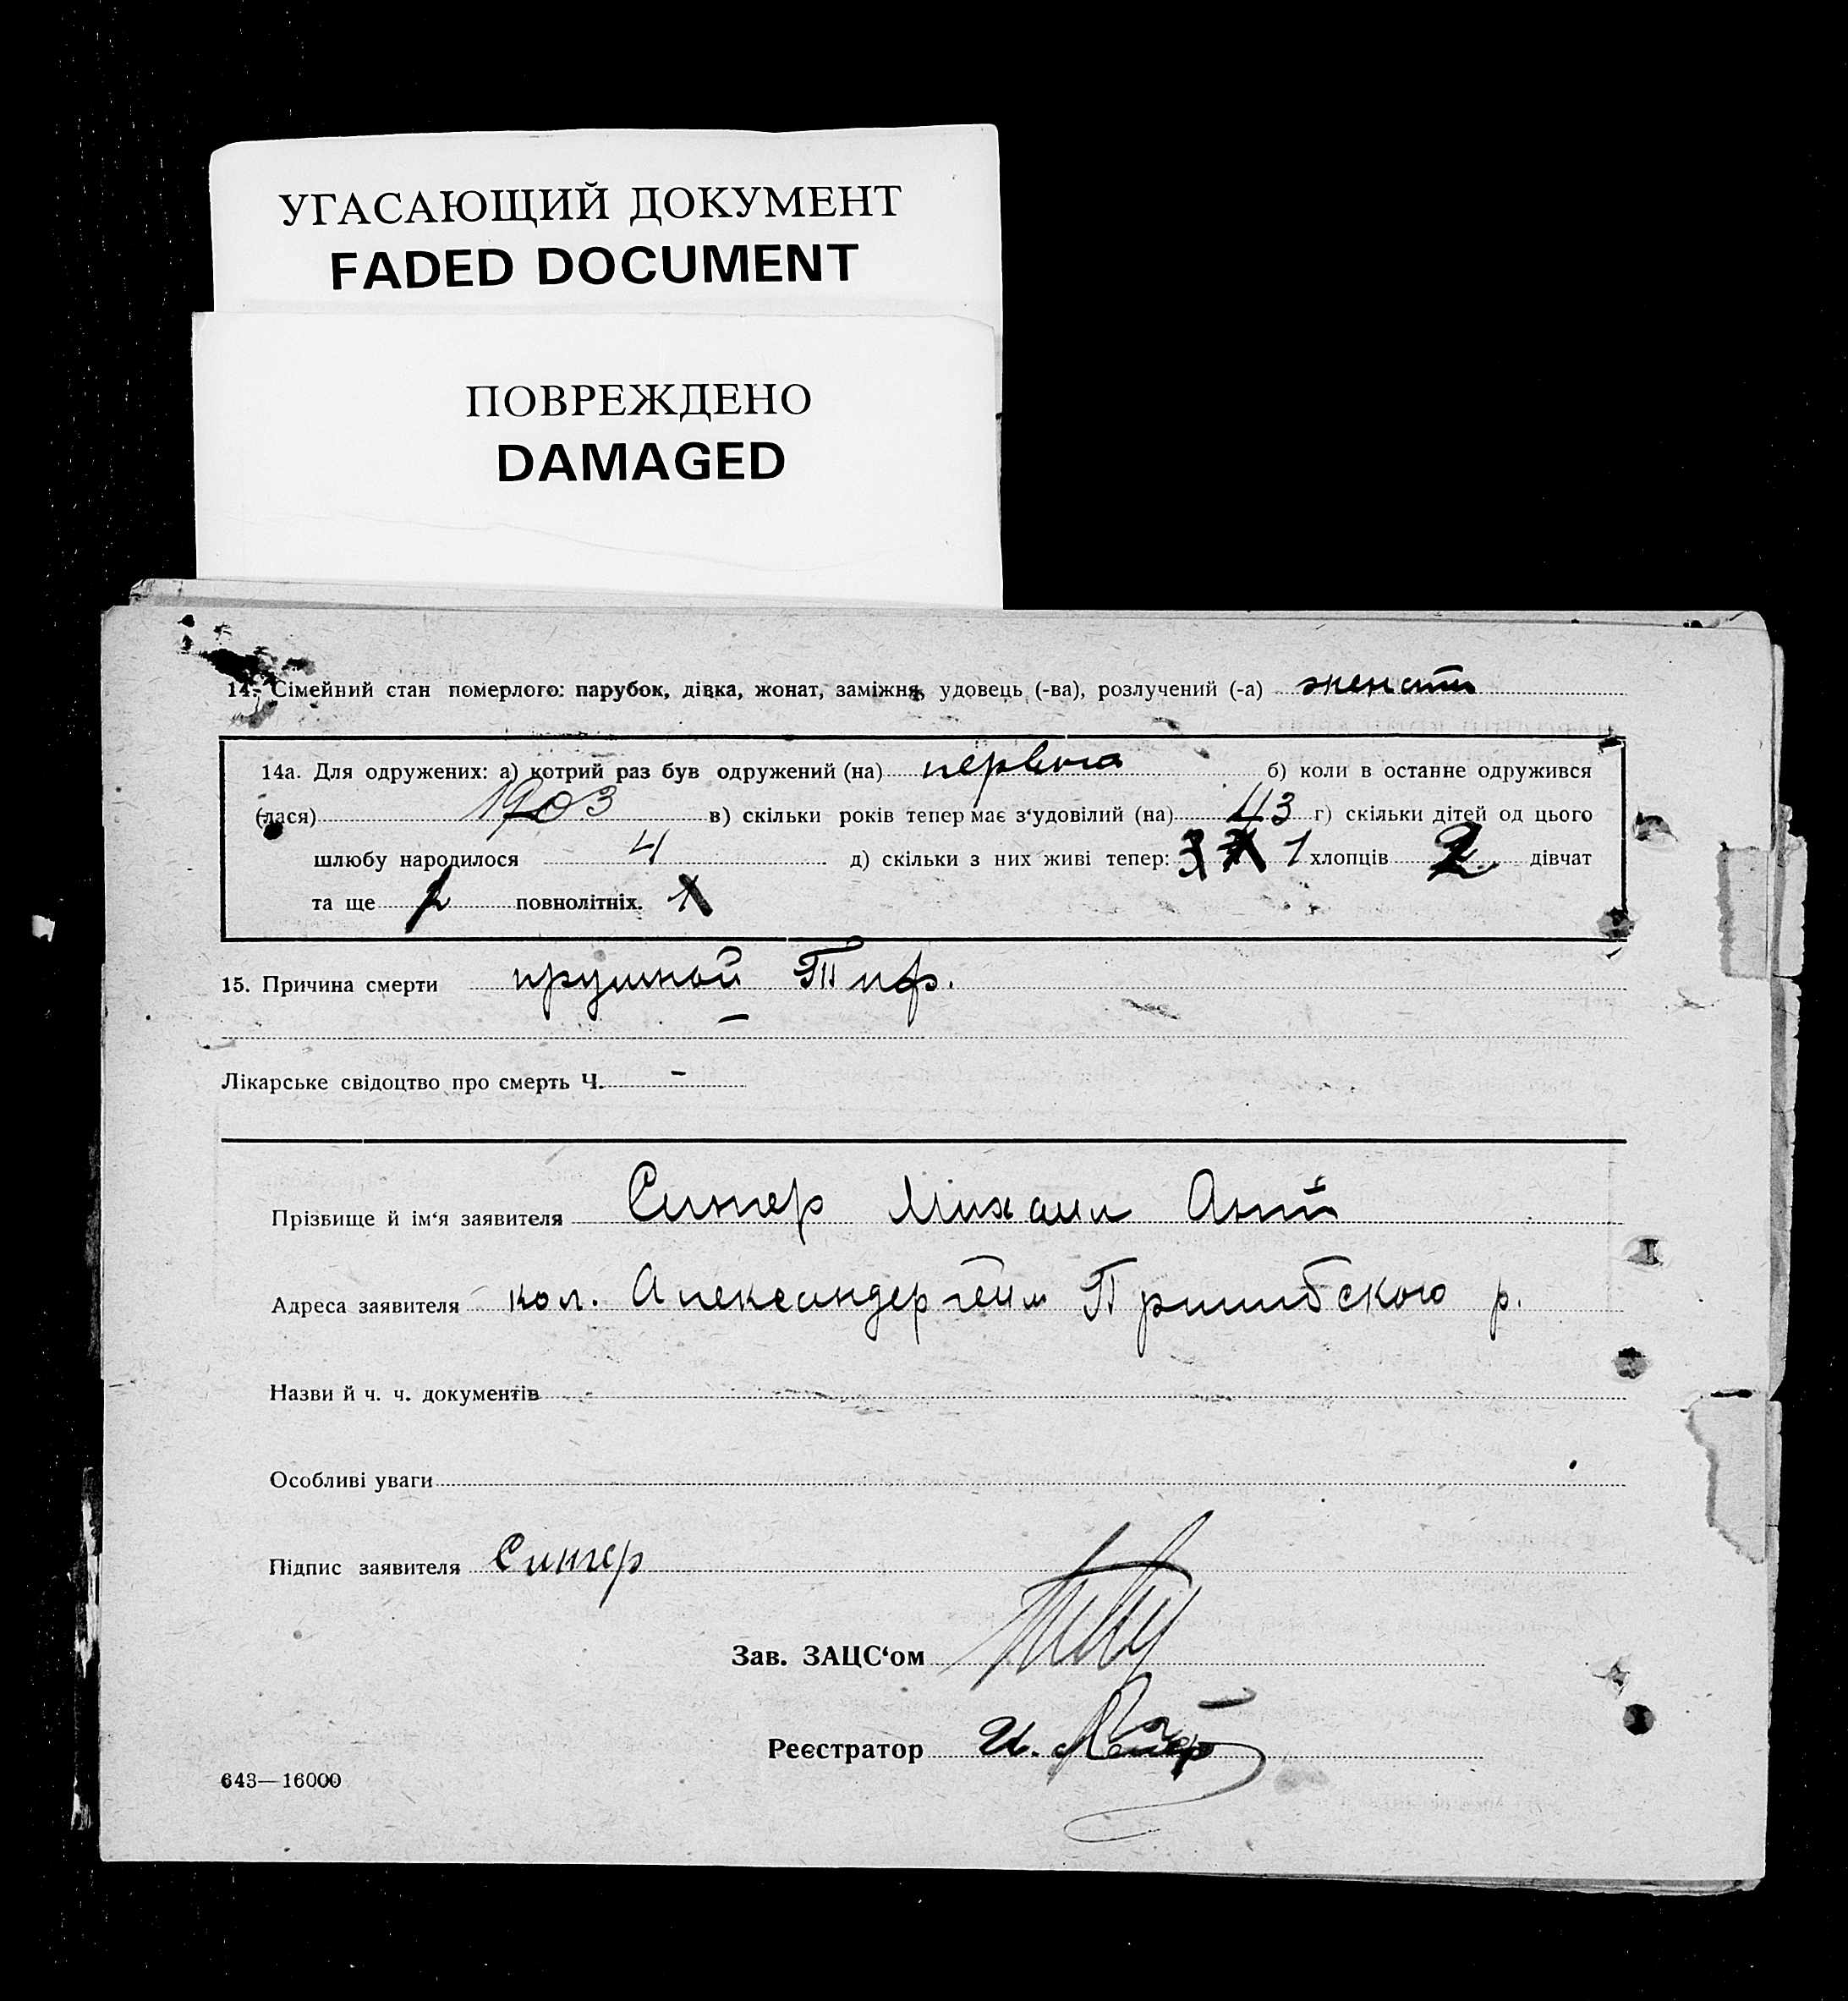 УГАСАЮЩИЙ ДОКУМЕНТ
FADED DOCUMENT
ПОВРЕЖДЕНО
DAMAGED
14. Сімейний стан померлого: парубок, дівка, жонат, заміжня, удовець (-ва), розлучений (-а) женат
14а. Для одружених: а) котрий раз був одружений (на) б) коли в останнє одружився
(лася) 1903 в) скільки років тепер має з‘удовілий (на) 43 г) скільки дітей од цього
шлюбу народилося 4 д) скільки з них живі тепер: 1 хлопців 2 дівчат
та ще повнолітніх.
15. Причина смерти Тиф.
Лікарське свідоцтво про смерть Ч. -
Прізвище й ім‘я заявителя Сингер Михаил Ант
Адреса заявителя кол. Александергейм Пришибского р.
Назви й ч. ч. документів
Особливі уваги
Підпис заявителя Сингер
Зав. ЗАЦС‘ом
Реєстратор И.
643—16000